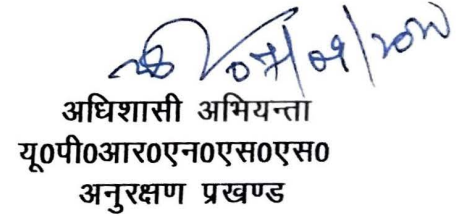 07/09/20
अधिशासी अभियन्ता
यू0पी0आर0एन0एस0एस0
अनुरक्षण प्रखण्ड